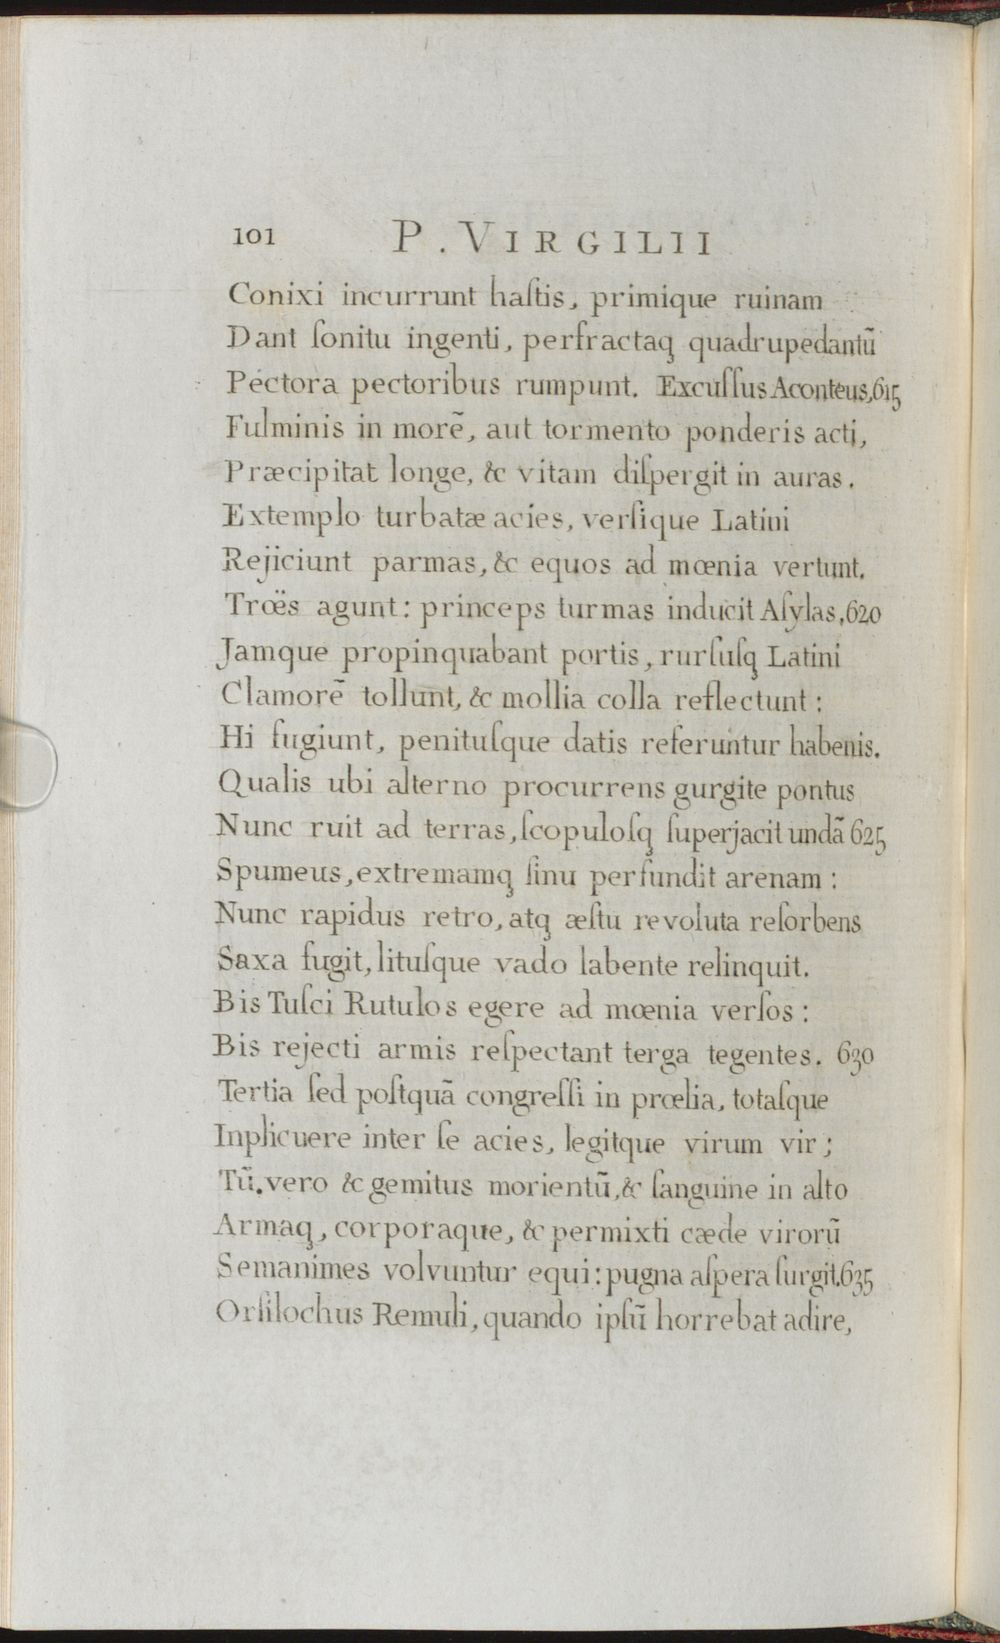 101 P. VIRGILII
Conixi incurrunt haſtis, primique ruinam
Dant ſonitu ingenti, perfractaq̨ quadrupedantũ
Pectora pectoribus rumpunt. Excuſſus Aconteus, 615
Fulminis in morẽ, aut tormento ponderis acti,
Præcipitat longe, & vitam diſpergit in auras.
Extemplo turbatæ acies, verſique Latini
Rejiciunt parmas, & equos ad mœnia vertunt.
Trœ̈s agunt: princeps turmas inducit Aſylas, 620
Jamque propinquabant portis, rurſuſq̨ Latini
Clamorẽ tollunt, & mollia colla reflectunt:
Hi fugiunt, penituſque datis referuntur habenis.
Qualis ubi alterno procurrens gurgite pontus
Nunc ruit ad terras, ſcopuloſq̨ ſuperjacit undã 625
Spumeus, extremamq̨ ſinu perfundit arenam:
Nunc rapidus retro, atq̨ æſtu revoluta reſorbens
Saxa fugit, lituſque vado labente relinquit.
Bis Tuſci Rutulos egere ad mœnia verſos:
Bis rejecti armis reſpectant terga tegentes. 630
Tertia ſed poſtquã congreſſi in prœlia, totaſque
Inplicuere inter ſe acies, legitque virum vir;
Tũ. vero & gemitus morientũ, & ſanguine in alto
Armaq̨, corporaque, & permixti cæde virorũ
Semanimes volvuntur equi: pugna aſpera ſurgit. 635
Orſilochus Remuli, quando ipſũ horrebat adire,